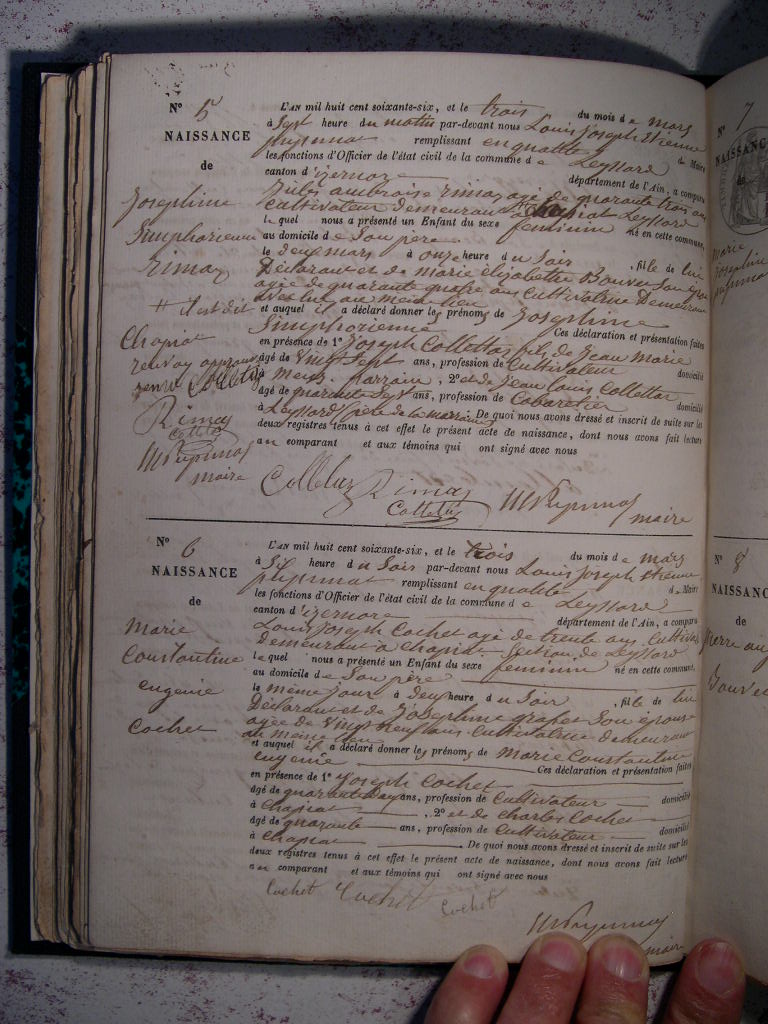 N° 5
NAISSANCE
de
Josephine
Simphorienne
Rimaz
# il est dit
Chapiat
renvoy approuvé
Colletaz
Rimaz
Colletaz
maire
L'AN mil huit cent soixante-six, et le trois du mois de mars
à Sept heure du matin par-devant nous Louis Joseph Etienne
remplissant en qualité de Maire
les fonctions d'Officier de l'état civil de la commune de Leyssard
canton d'izernore département de l'Ain, a comparu
Jules ambroise rimaz agé de quarante trois ans
Cultivateur demeurant à Leyssard
lequel nous a présenté un Enfant du sexe feminin né en cette commune,
au domicile de Son père
le deux mars à onze heure du Soir, fille de lui
Déclarant et de marie elizabeth Bouvet Son épouse
agée de quarante quatre ans Cultivatrice Demeurant
avec lui au meme lieu
et auquel il a déclaré donner les prénoms de Josephine
Simphorienne Ces déclaration et présentation faites
en présence de 1° Joseph Collettaz fils de Jean Marie
âgé de Vingt Sept ans, profession de Cultivateur domicilié
à parrain, 2° et de Jean Louis Collettaz
âgé de quarante Sept ans, profession de Cabaretier domicilié
à Leyssard père de la marraine De quoi nous avons dressé et inscrit de suite sur les
deux registres tenus à cet effet le présent acte de naissance, dont nous avons fait lecture
au comparant et aux témoins qui ont signé avec nous
Colletaz Rimaz
Colletaz maire
N° 6
NAISSANCE
de
Marie
Constantine
eugenie
Cochet
L'AN mil huit cent soixante-six, et le trois du mois de mars
à Six heure du Soir par-devant nous Louis Joseph Etienne
remplissant en qualité de Maire
les fonctions d'Officier de l'état civil de la commune de Leyssard
canton d'izernore département de l'Ain, a comparu
Louis Joseph Cochet agé de trente ans Cultivateur
Demeurant a chapiat Section de Leyssard
lequel nous a présenté un Enfant du sexe feminin né en cette commune,
au domicile de Son père
le même jour à deux heure du Soir, fille de lui
Déclarant et de Josephine grapet Son épouse
agée de Vingt neuf ans Cultivatrice demeurant
au meme lieu
et auquel il a déclaré donner les prénoms de Marie Constantine
eugenie Ces déclaration et présentation faites
en présence de 1° Joseph Cochet
âgé de quarante ans, profession de Cultivateur domicilié
à Chapiat, 2° et de Charles Cochet
âgé de quarante ans, profession de Cultivateur domicilié
à Chapiat De quoi nous avons dressé et inscrit de suite sur les
deux registres tenus à cet effet le présent acte de naissance, dont nous avons fait lecture
au comparant et aux témoins qui ont signé avec nous
Cochet Cochet Cochet
maire
N° 7
NAISSANCE
de
marie
Josephine
N° 8
NAISSANCE
de